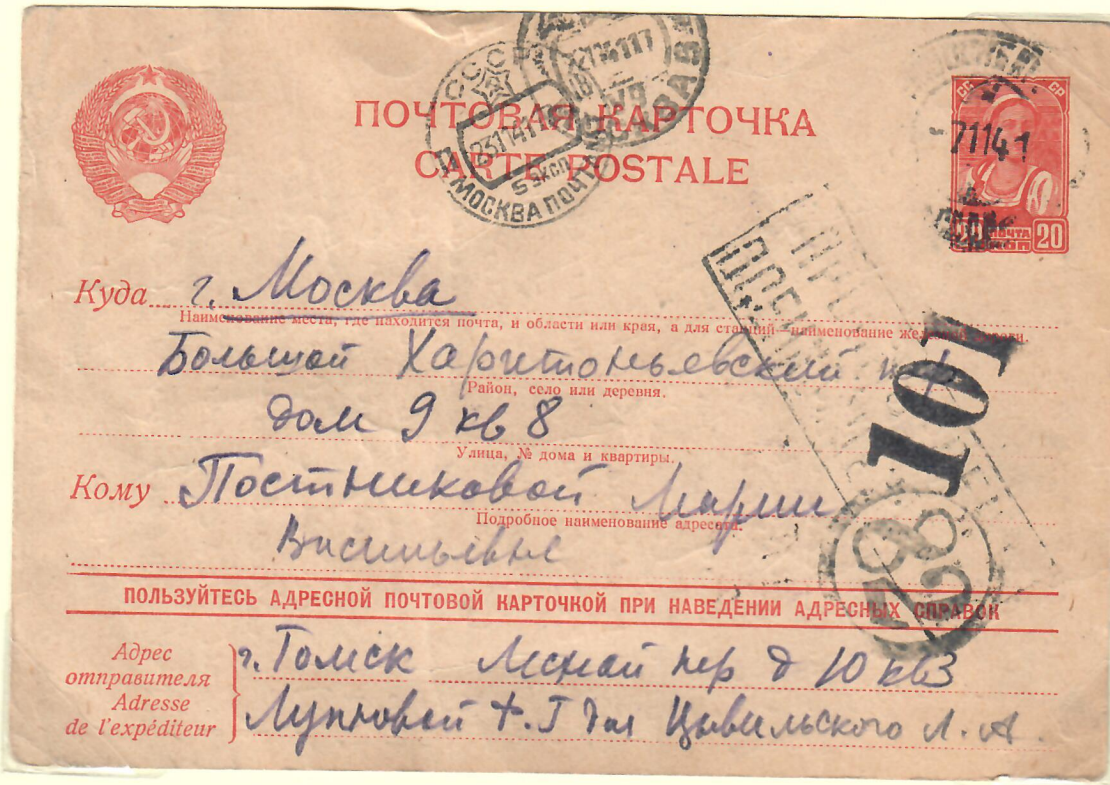 ПОЧТОВАЯ КАРТОЧКА
CARTE POSTALE
СССР
23 11 41
5 эксп
МОСКВА ПОЧТ
7 11 41
СС СР
ПОЧТА
20
Куда г. Москва
Наименование места, где находится почта, и области или края, а для станций—наименование железной дороги.
Большой Харитоньевский пер
Район, село или деревня.
дом 9 кв 8
Улица, № дома и квартиры.
Кому Постниковой Марии
Подробное наименование адресата.
Васильевне
101
28
ПОЛЬЗУЙТЕСЬ АДРЕСНОЙ ПОЧТОВОЙ КАРТОЧКОЙ ПРИ НАВЕДЕНИИ АДРЕСНЫХ СПРАВОК
Адрес отправителя
Adresse de l'expéditeur
г. Томск Лесной пер д 10 кв 3
для Цывильского Л. А.